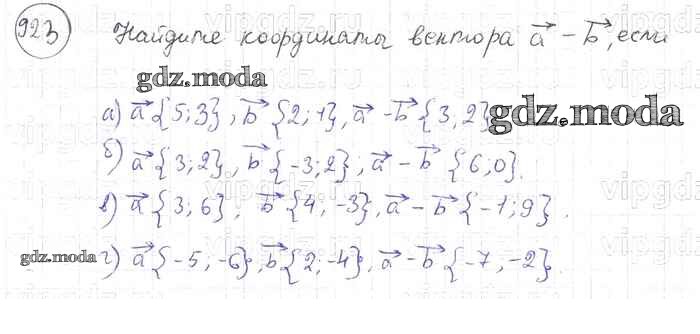 923 Найдите координаты вектора a⃗ - b⃗, если
gdz.moda
а) a⃗ {5; 3}, b⃗ {2; 1}, a⃗ - b⃗ {3, 2}
gdz.moda
б) a⃗ {3; 2}, b⃗ {-3; 2}; a⃗ - b⃗ {6; 0}.
в) a⃗ {3; 6}; b⃗ {4; -3}, a⃗ - b⃗ {-1; 9}.
gdz.moda
г) a⃗ {-5; -6}, b⃗ {2; -4}, a⃗ - b⃗ {-7, -2}.